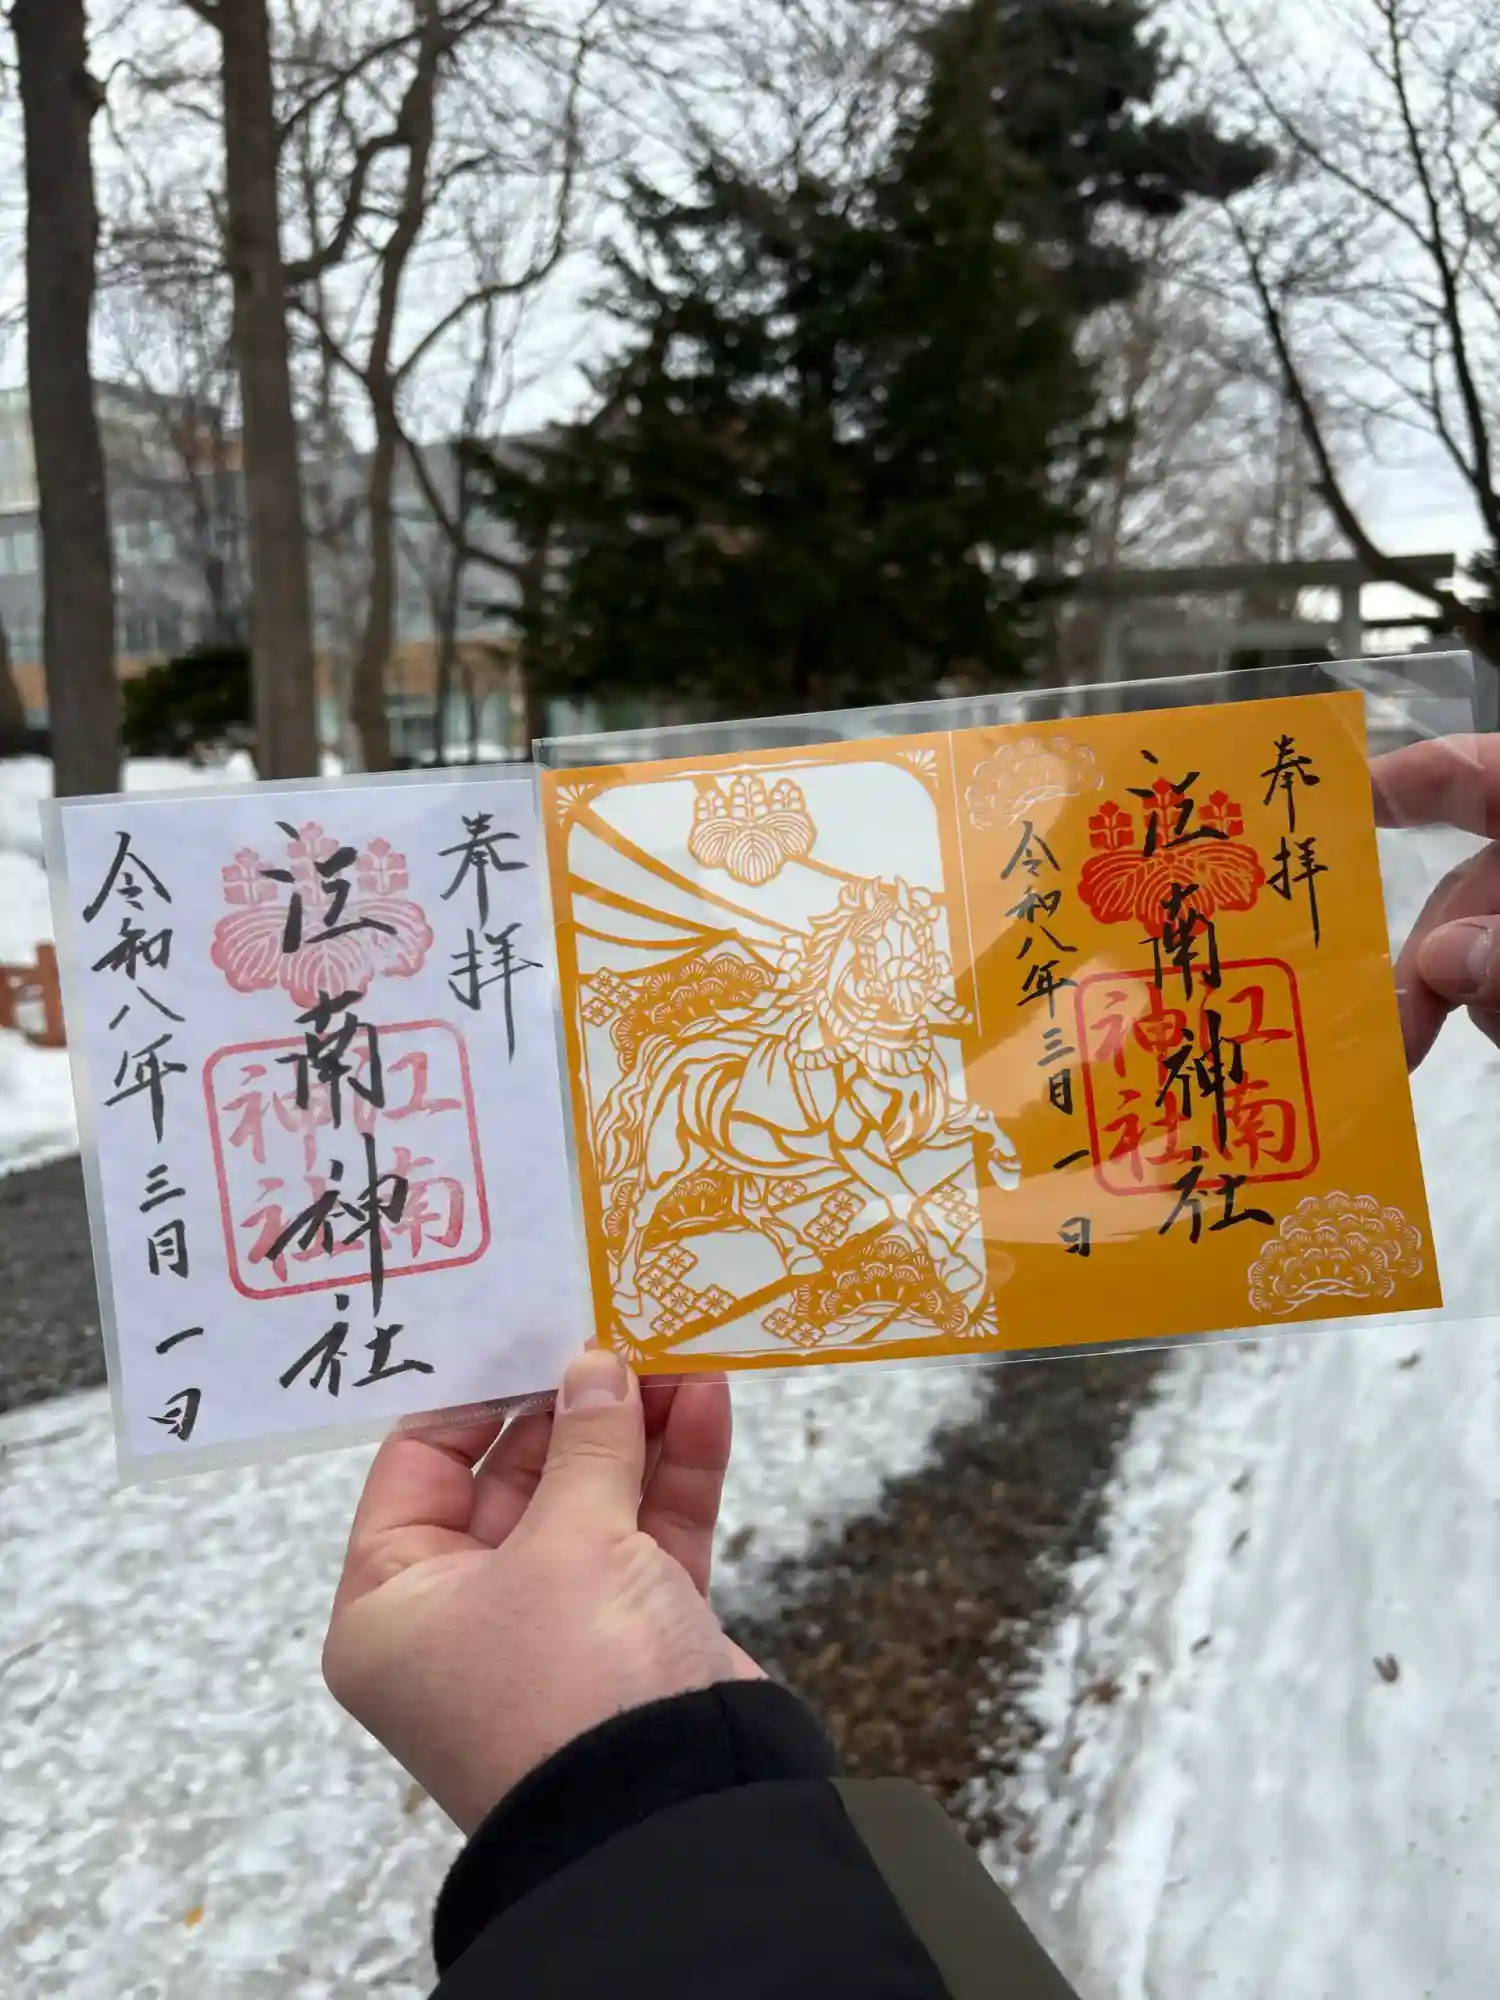 奉拝
江南神社
江南
神社
令和八年三月一日
奉拝
江南神社
江南
神社
令和八年三月一日